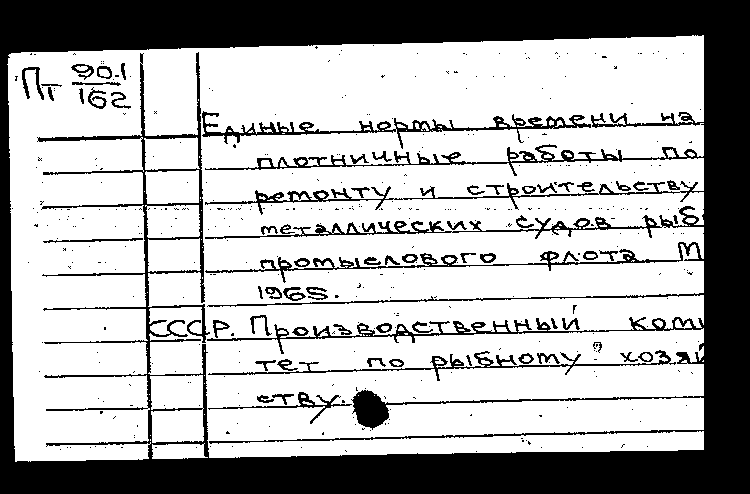 Пт 90.1
162
Единые нормы времени на
плотничные работы по
ремонту и строительству
металлических судов рыб
промыслового флота. М
1965.
СССР. Производственный коми
тет по рыбному хозяй
ству.